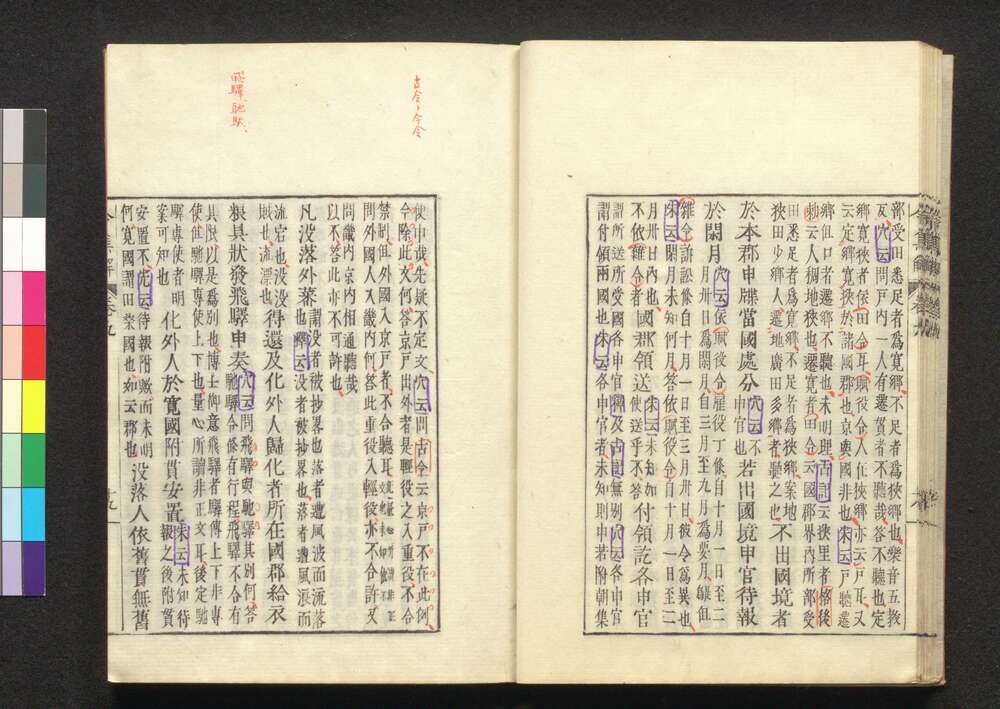 部受田悉足者爲寛郷不足者爲狹郷也樂音五挍
反穴云問戸内一人有遷者不聽哉答不聽也定
郷寛狹者依田令耳賦役令人在狹郷亦云戸耳又
云定郷寛狹於諸國郡也京與國非也朱云戸聽遷
郷但口者遷郷不聽也未明理古記云狹里者格後
云人稠地狹也遷寛者田令云國郡界内所部受
田悉足者爲寛郷不足者爲狹郷案地
狹田少人遷地廣田多郷者聽之也不出國境者
於本郡申牒當國處分穴云不申官也若出國境申官待報
於閑月穴云依賦役令雇役丁條自十月一日至二
月卅日爲閑月自三月至九月爲要月但
雜令訴訟條自十月一日至三月卅日彼令爲異也
朱云閑月未知自何月答依賦役令自十月一日至二
月卅日内也國郡領送朱云未知如
不依雜令者國郡領送使送乎不答付領訖各申官
謂所送所受國各申官釋及古記無別穴云各申官
謂付領兩國也朱云各申官者未知則申若附朝集
使申哉先疑不定文穴云問古令云京戸不在此例
今除此文何答京戸出外者是輕役之人重役不合
禁制但外國人入京戸者不合聽耳
問外國人入畿内何答此重役入輕役亦不合許又
問畿内京内相通聽哉
以不答此亦不可許也
凡没落外蕃謂没者被抄畧也落者遭風波而流落
也釋云没者被抄畧也落者遭風浪而
流宕也没没得還及化外人歸化者所在國郡給衣
賊也流漂也
粮具状發飛驛申奏穴云問飛驛與馳驛其別何答
馳驛令條有行程飛驛不合有
具限以是爲別也博士御意飛驛者驛傳上下非專
使但馳驛專使上下也量心所謂非正文耳後定馳
驛專使者明
案可知也化外人於寛國附貫安置朱云未知待
報之後附貫
安置不先云待報附貫而未明
何寛國謂田榮國也如云郡也没落人依舊貫無舊
古令々今令
飛驛馳馱